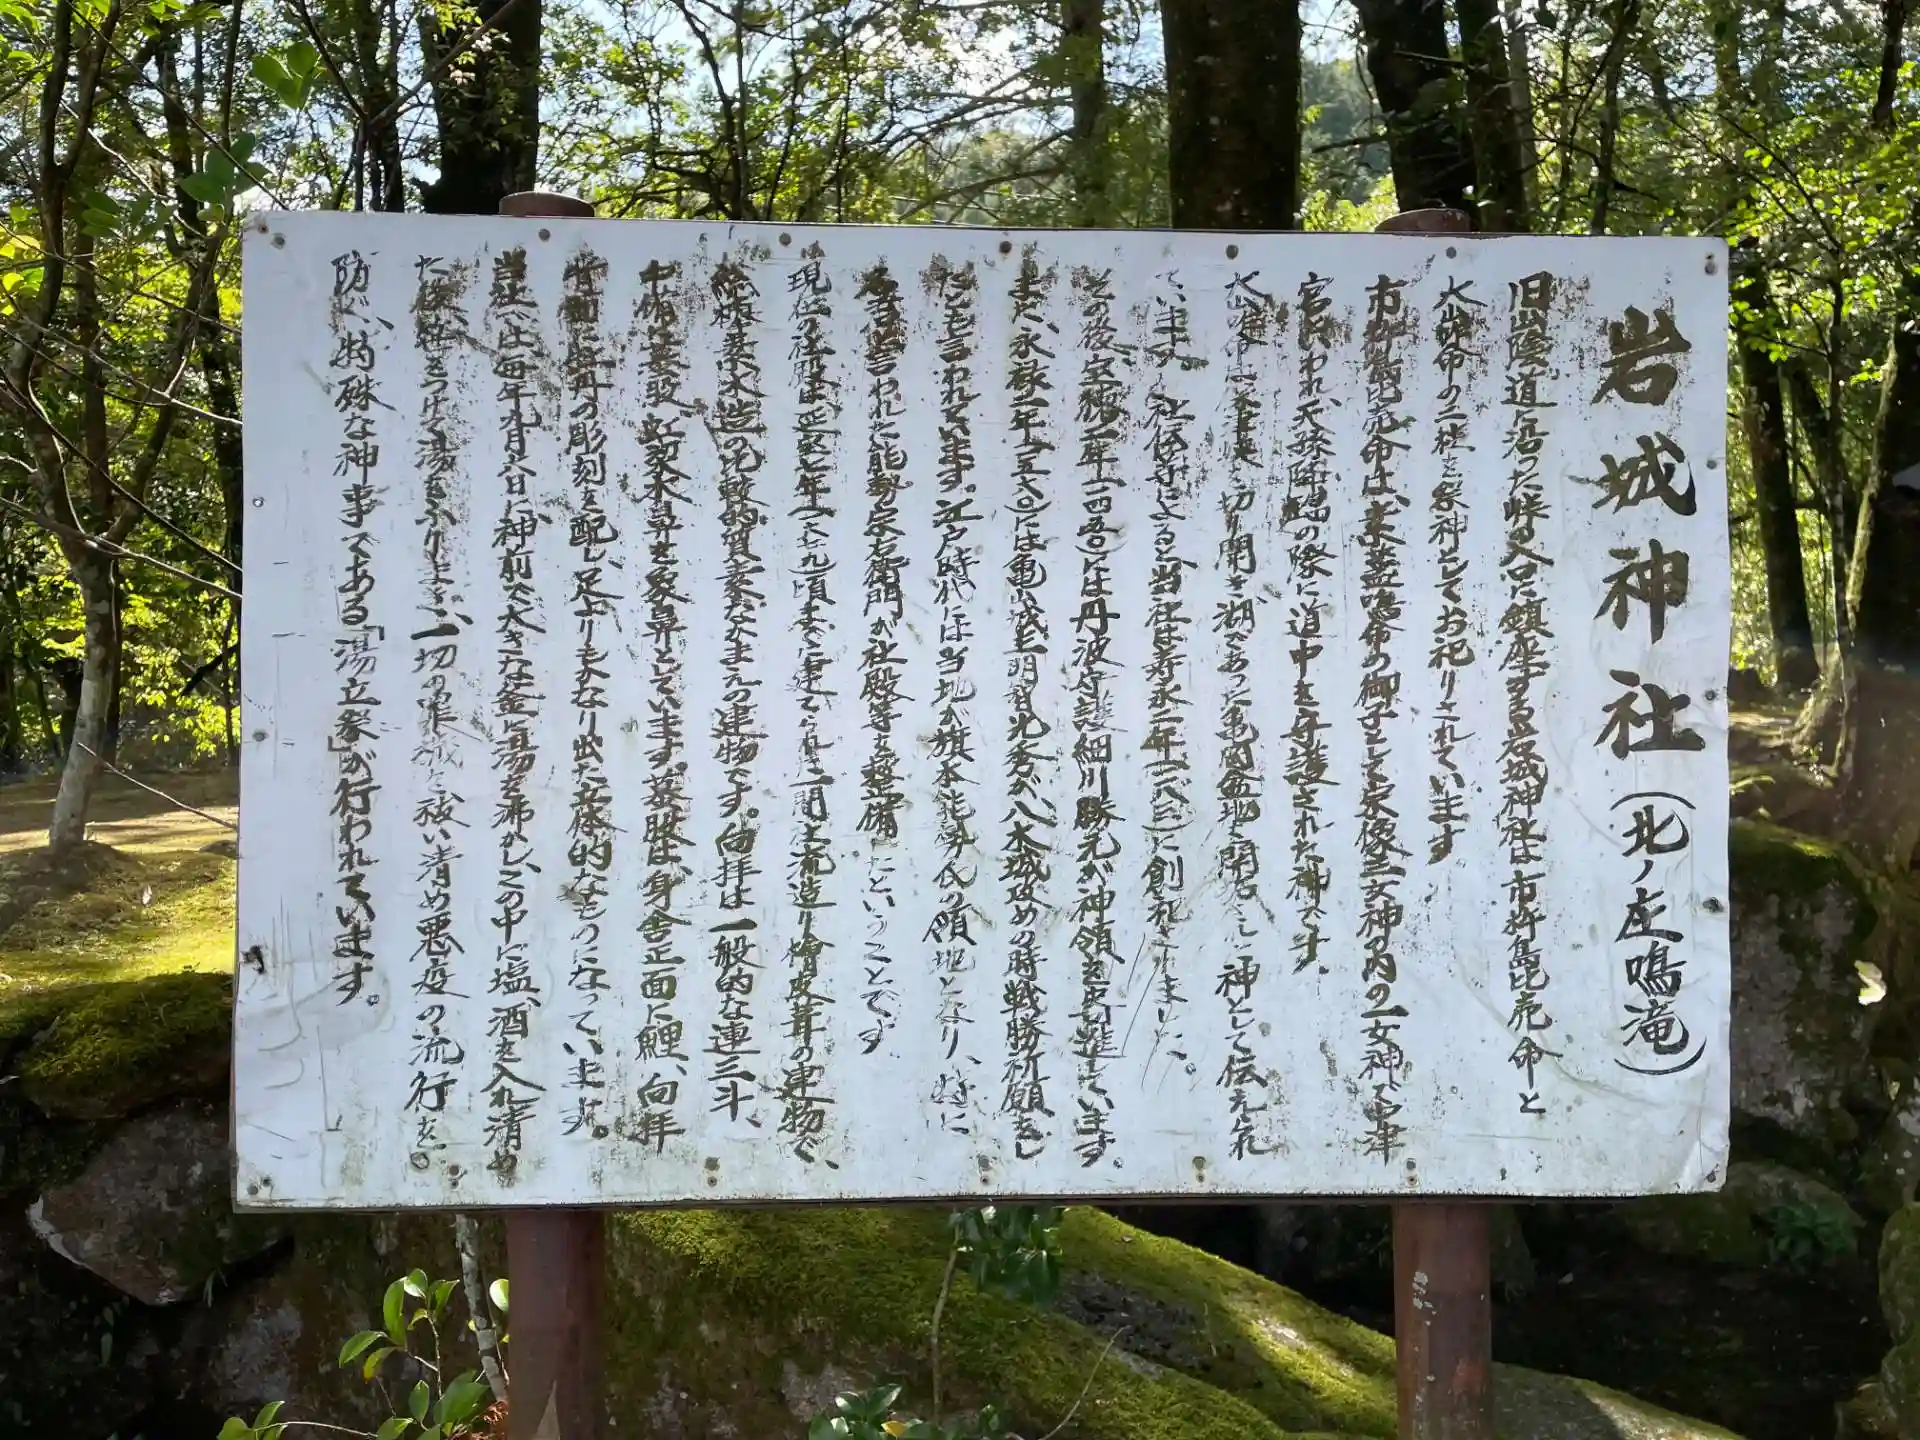 岩城神社（北ノ庄鳴滝）
旧山陰道に沿った峠の入口に鎮座する岩城神社は市杵島毘売命と
大山咋命の二柱を祭神としてお祀りされています
市杵島毘売命は、素盞鳴命の御子として宗像三女神の内の一女神で中津
宮に祀われ、天孫降臨の際に道中を守護された神です。
大山咋命は峡を切り開き湖であった亀岡盆地を開拓した神として伝えられ
ています。社伝等によると当社は寿永二年（一一八三）に創祀されました。
その後宝徳二年（一四五〇）には丹波守護細川勝元が神領を寄進しています。
また、永禄三年（一五六〇）には亀山城主明智光秀が、八木城攻めの時戦勝祈願をし
たとも言われています。江戸時代には当地が旗本能勢氏の領地となり、特に
名君と言われた能勢宗右衛門が社殿等を整備したということです
現在の社殿は、延宝七年（一六七九）頃までに建てられた一間社流造り檜皮葺の建物で、
総檜素木造の比較的質素なかまえの建物です。向拝は一般的な連三斗、
中備は蟇股、虹梁木鼻を象鼻としています。蟇股は、身舎正面に鯉、向拝
背面に牡丹の彫刻を配し、足よりもかなり出た立体的なものになっています。
当社では、毎年九月六日に神前で大きな釜に湯を沸かし、この中に塩、酒を入れ清め
た後笹をつけて湯をふりまき、一切の罪穢を祓い清め悪疫の流行を
防ぐ、特殊な神事である「湯立祭」が行われています。